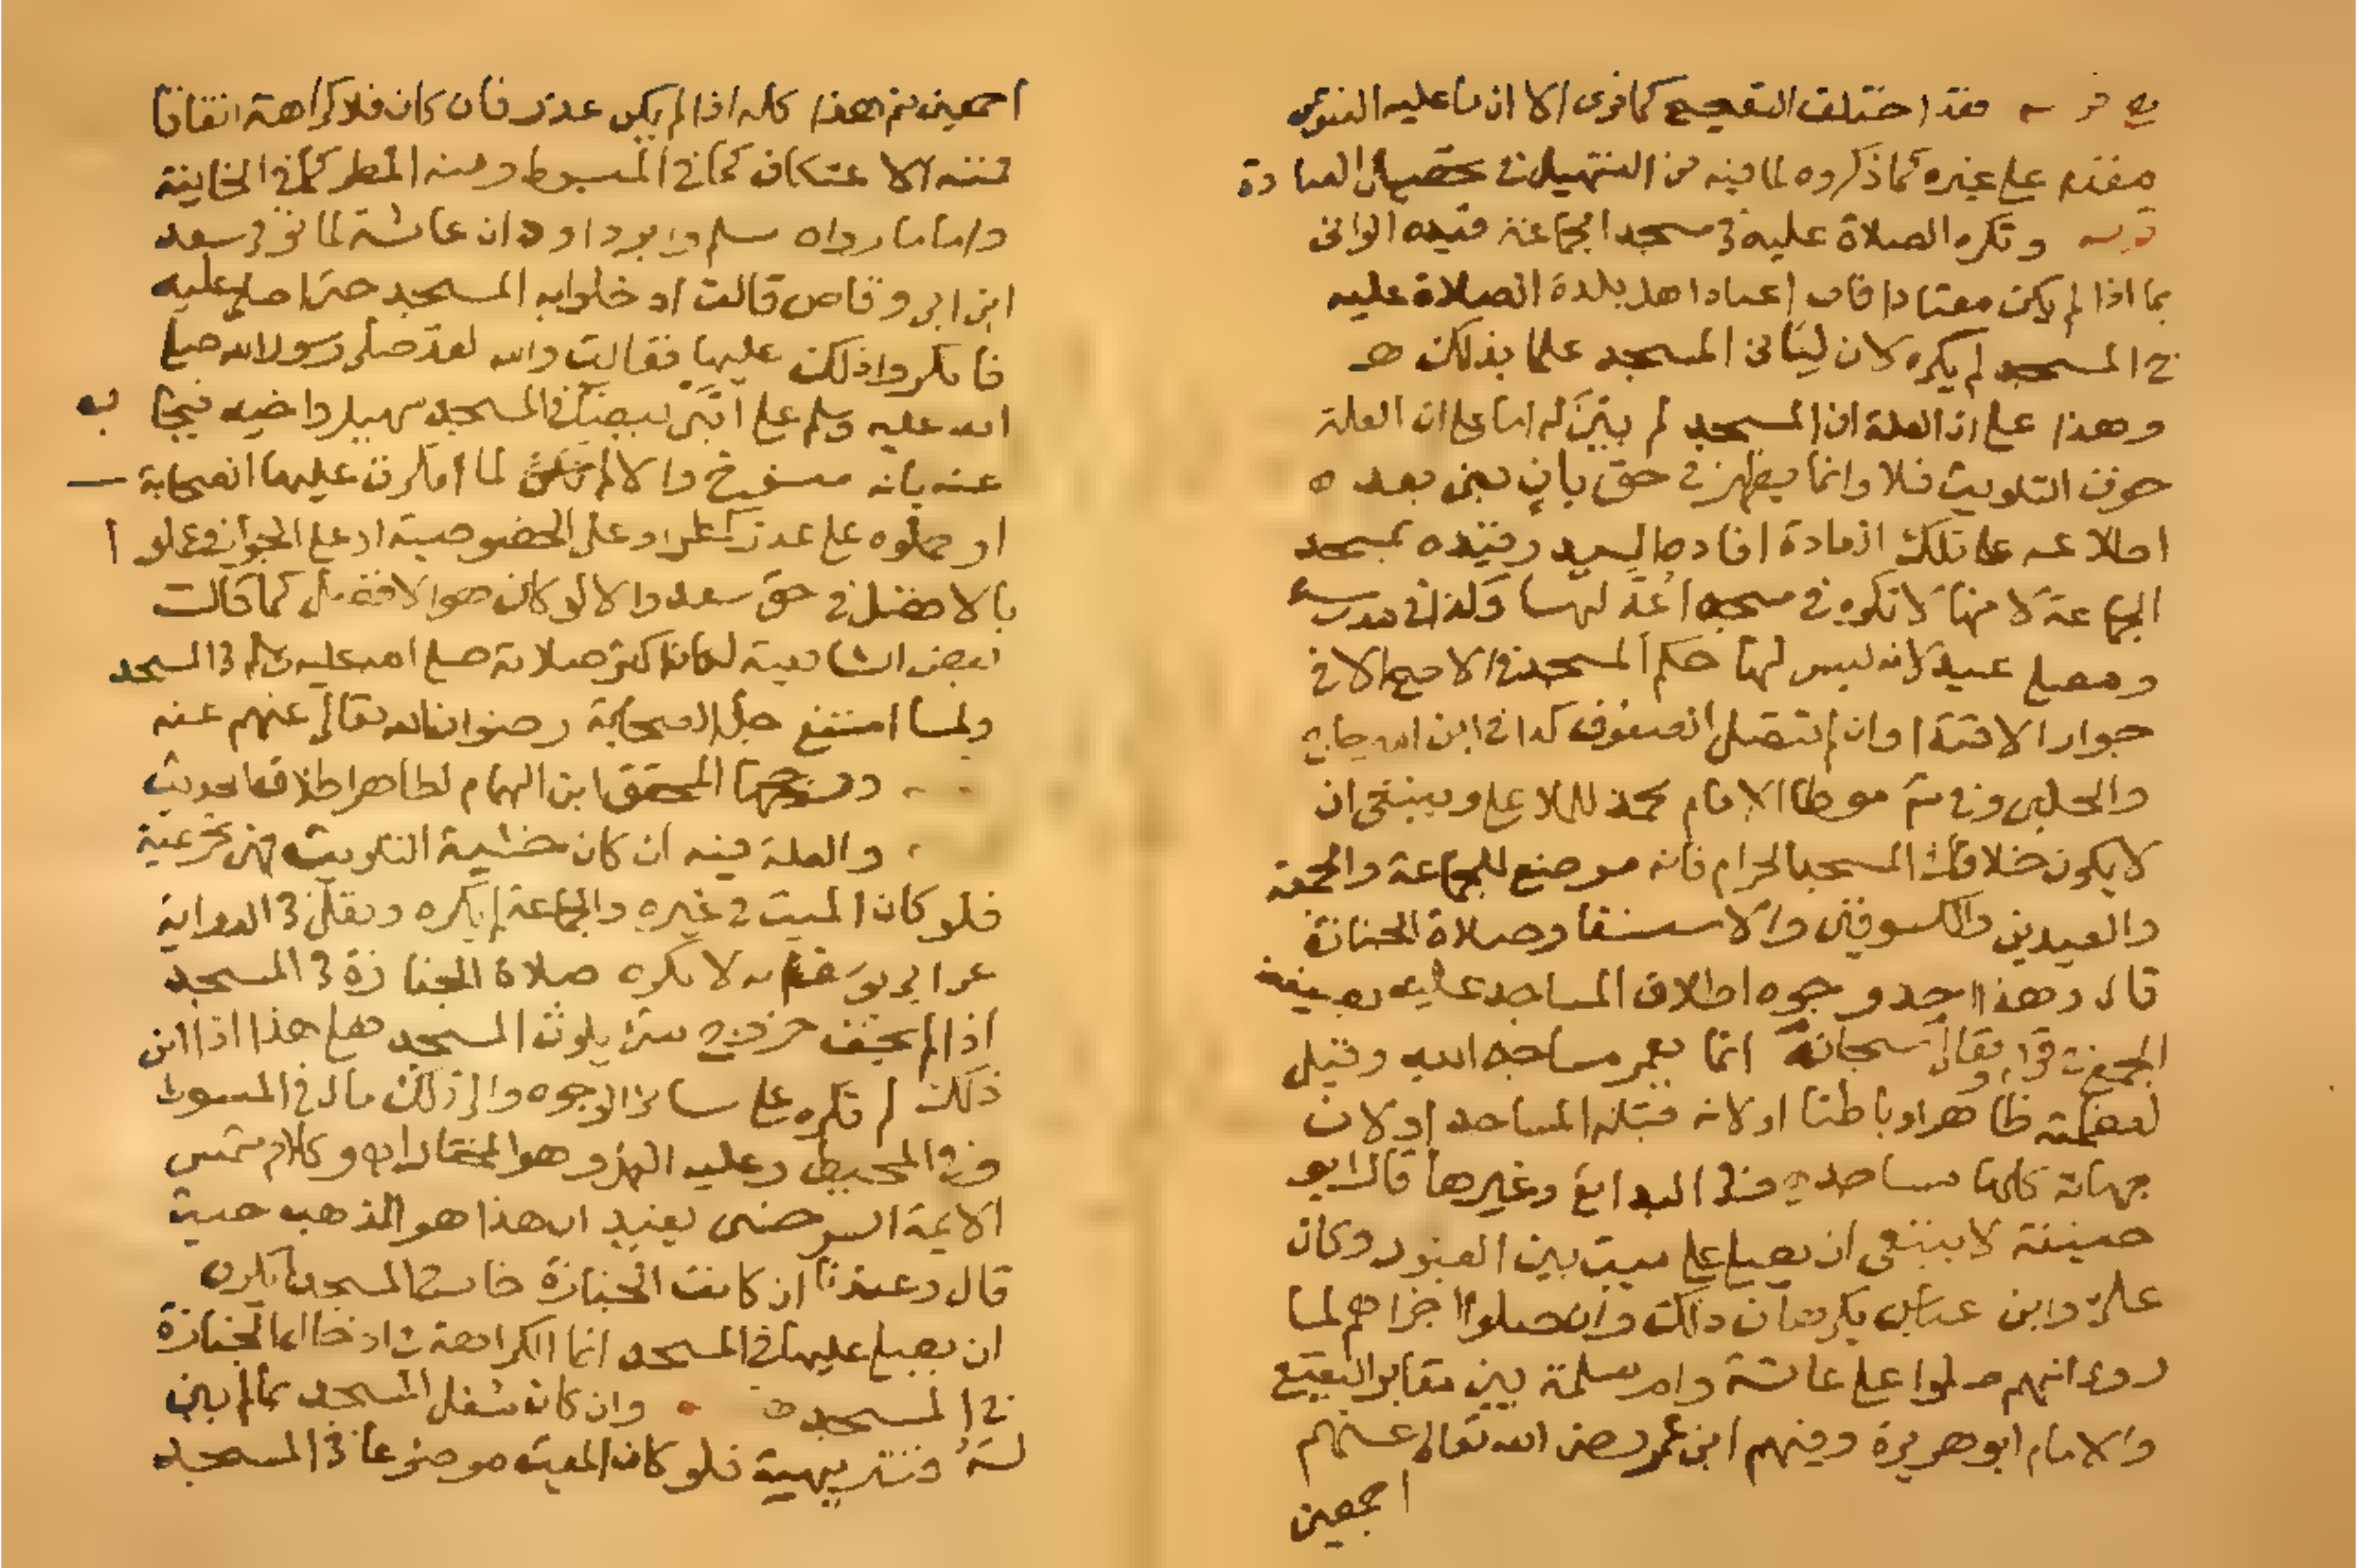 فقد اختلف التصحيح كما ترى الا ان ما عليه الفتوى
مقدم على غيره كما ذكروه لما فيه من التسهيل في تحصيل العبادة
وتكره الصلاة عليه في مسجد الجماعة قيده الوانى
بما اذا لم يكن معتادا فان اعتاد اهل بلدة الصلاة عليه
في المسجد لم يكره لان لبانى المسجد علما بذلك
وهذا على ان العلة ان المسجد لم يبن له اما على ان العلة
خوف التلويث فلا وانما يظهر في حق بان بنى بعد
اطلاعه على تلك العادة افاده السيد وقيده بمسجد
الجماعة لانها لا تكره في مسجد اعد لها وكذا في مدرسة
ومصلى عيد لانه ليس لها حكم المسجد في الاصح الا في
جواز الاقتدا وان لم تتصل الصفوف كذا في ابن امير حاج
والحلبى وفي شرح موطا الامام محمد للملا على وينبغى ان
لا يكون خلاف في المسجد الحرام فانه موضع للجماعة والجمعة
والعيدين والكسوفين والاستسقا وصلاة الجنازة
قال وهذا احد وجوه اطلاق المساجد عليه بصيغة
الجمع في قوله تعالى سبحانه انما يعمر مساجد الله وقيل
لعظمته ظاهرا وباطنا او لانه قبلة المساجد او لان
جهاته كلها مساجد وفي البدايع وغيرها قال ابو
حنيفة لا ينبغى ان يصلى على ميت بين القبور وكان
على وابن عباس يكرهان ذلك وان صلوا اجزاهم لما
روى انهم صلوا على عائشة وام سلمة بين مقابر البقيع
والامام ابو هريرة وفيهم ابن عمر رضى الله تعالى عنهم
اجمعين
اجمعين ثم هذا كله اذا لم يكن عذر فان كان فلا كراهة اتفاقا
فمنه الاعتكاف كما في المبسوط ومنه المطر كما في الخانية
واما ما رواه مسلم وابو داود ان عائشة لما توفى سعد
ابن ابى وقاص قالت ادخلوا به المسجد حتى اصلى عليه
فانكروا ذلك عليها فقالت والله لقد صلى رسول الله صلى
الله عليه وسلم على ابنى بيضا في المسجد سهيل واخيه فيجا ب
عنه بانه منسوخ والا لما انكرت عليها الصحابة
او حملوه على عذر كمطر او على الخصوصية او على الجواز
بالافضل في حق سعد والا لو كان هو الافضل كما قالت
بعض الشافعية لكان اكثر صلاته صلى الله عليه وسلم في المسجد
ولما امتنع جل الصحابة رضوان الله تعالى عنهم عنه
المحقق ابن الهمام لظاهر اطلاق الحديث
والعلة فيه ان كان خشية التلويث فهى تحريمية
فلو كان الميت في غيره والجماعة لم يكره ونقل في الدراية
عن ابى يوسف انه لا يكره صلاة الجنازة في المسجد
اذا لم يخف خروج شئ يلوث المسجد فعلى هذا اذا امن
ذلك لم تكره على سائر الوجوه والى ذلك مال في المبسوط
وفي المحيط وعليه العمل وهو المختار اهـ وكلام شمس
الايمة السرخسى يفيد ان هذا هو المذهب حيث
قال وعندنا ان كانت الجنازة خارج المسجد لم يكره
ان يصلى عليها في المسجد انما الكراهة في ادخال الجنازة
في المسجد وان كان شغل المسجد بما لم يبن
له فتنزيهية فلو كان الميت موضوعا في المسجد